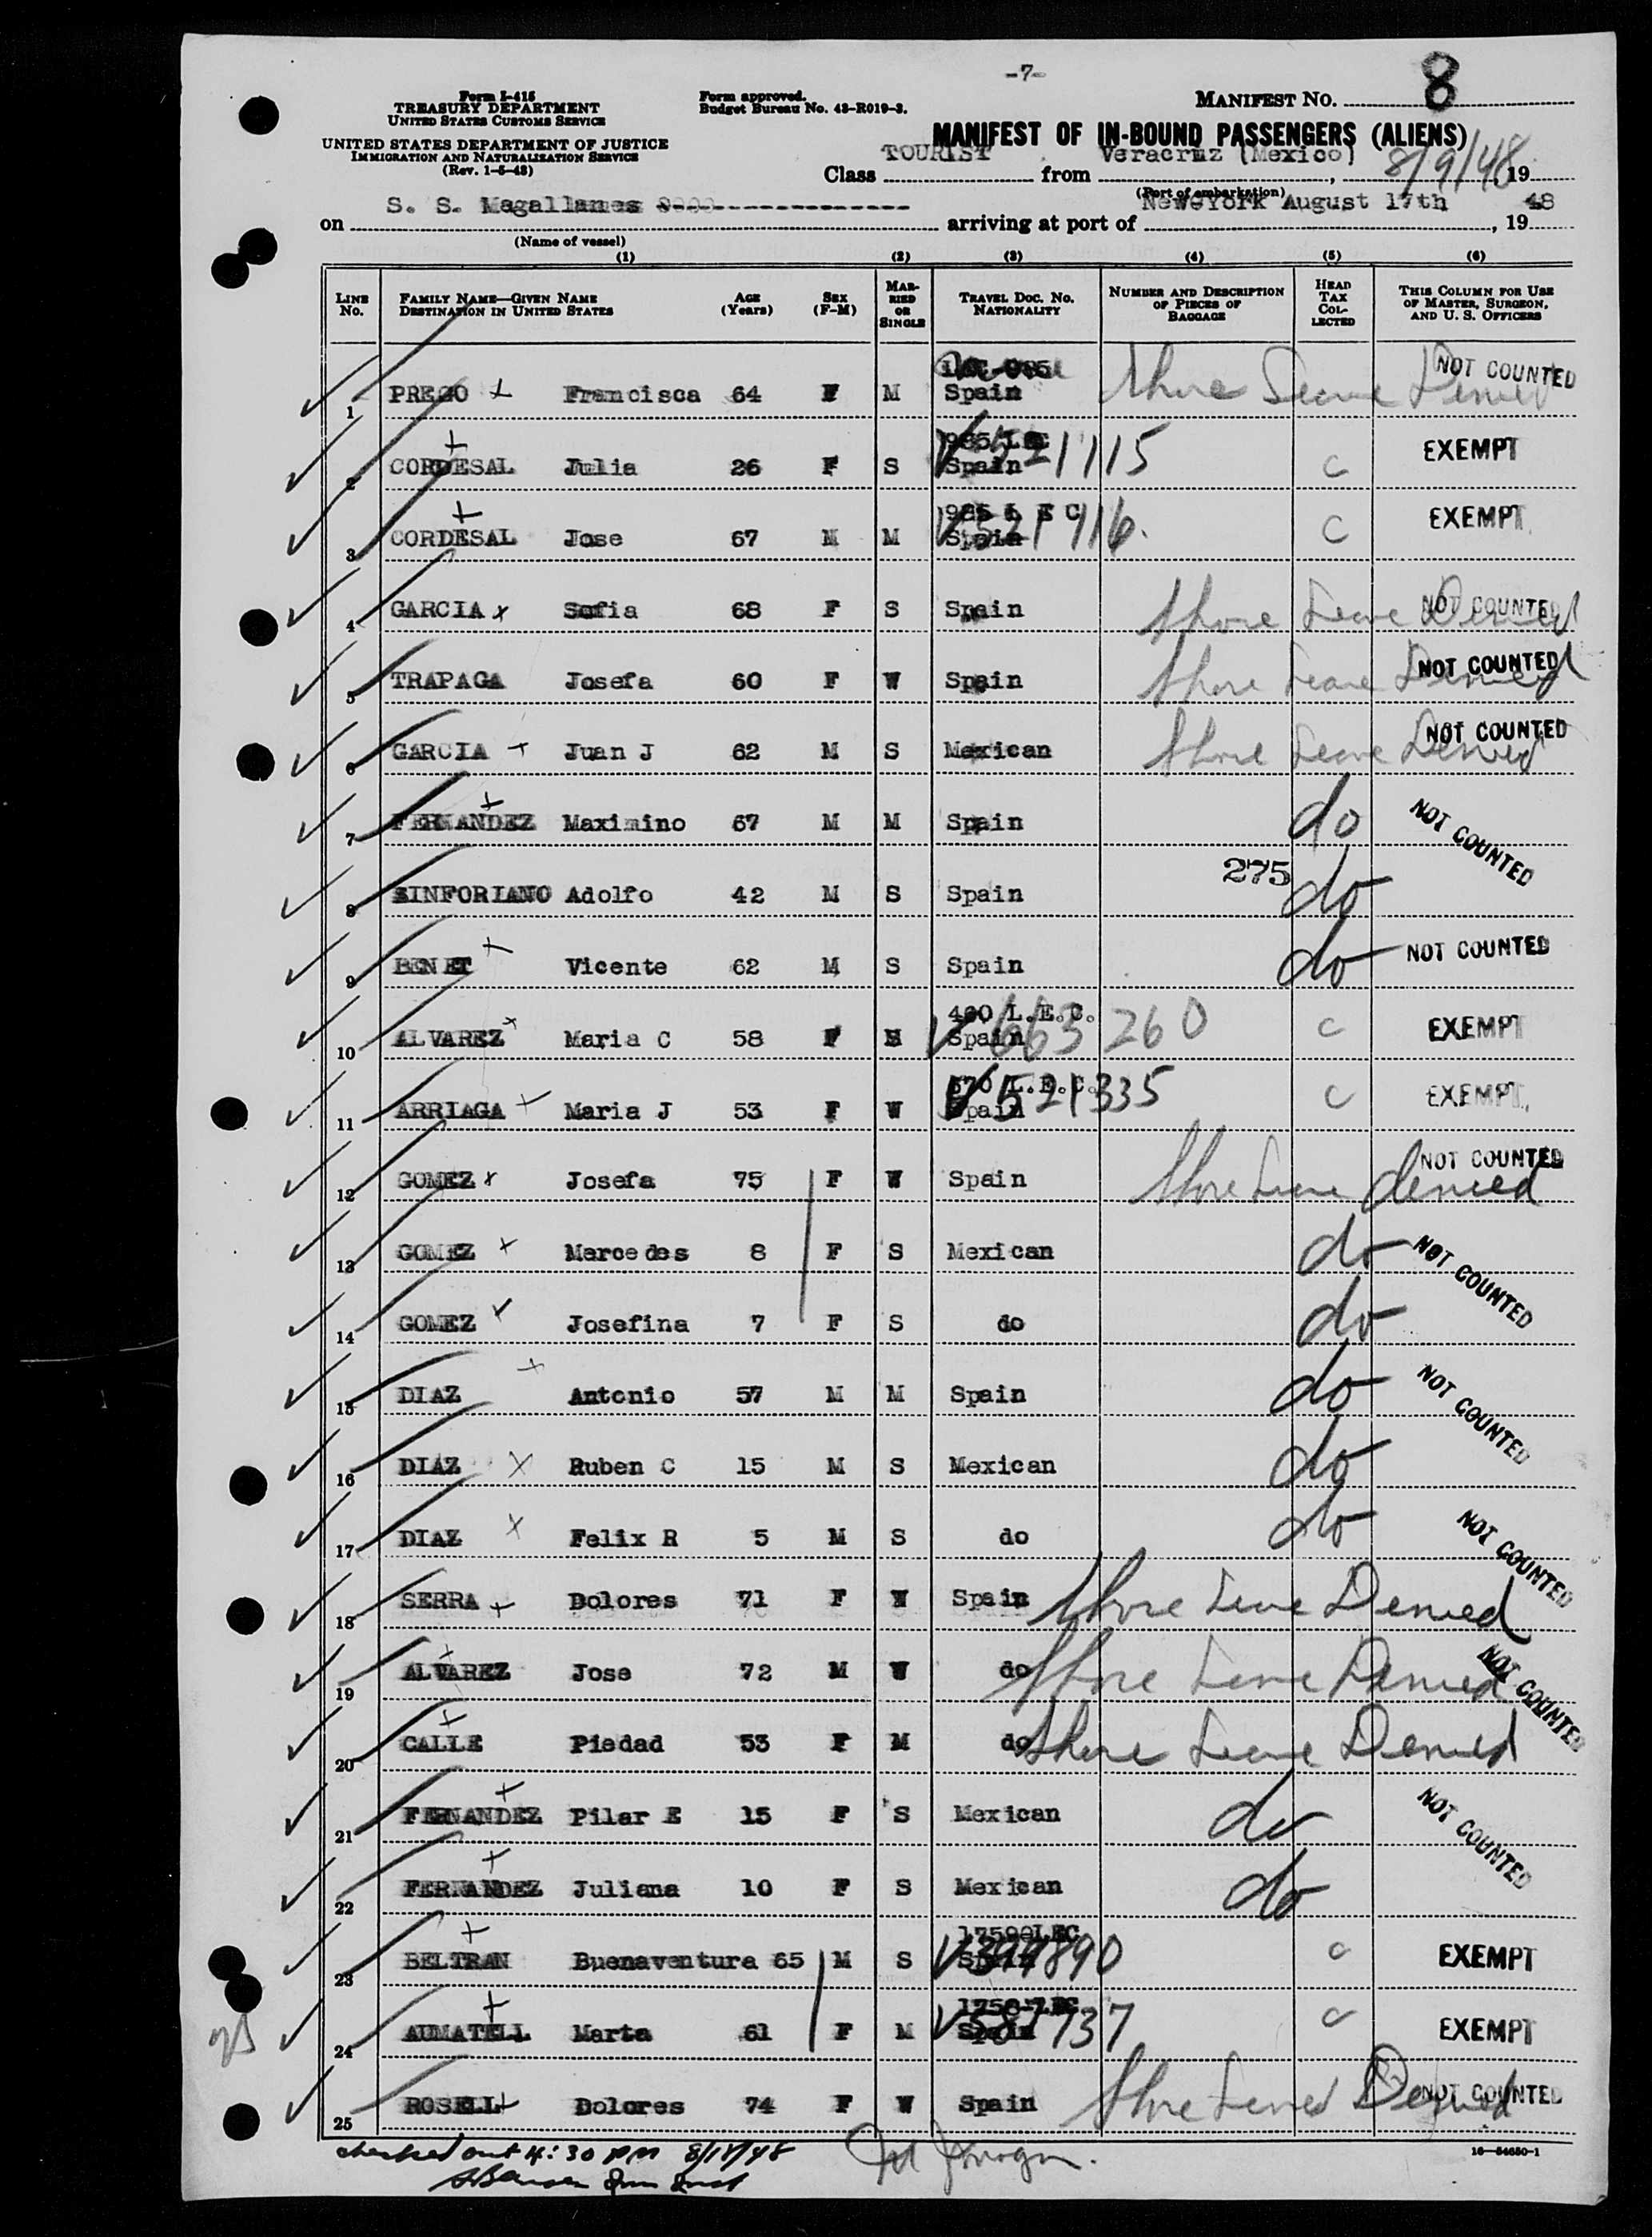 -7-
8
Form I-415
TREASURY DEPARTMENT
UNITED STATES CUSTOMS SERVICE
UNITED STATES DEPARTMENT OF JUSTICE
IMMIGRATION AND NATURALIZATION SERVICE
(Rev. 1-5-48)
Form approved.
Budget Bureau No. 43-R019-3.
MANIFEST NO.
MANIFEST OF IN-BOUND PASSENGERS (ALIENS)
Class TOURIST from Veracruz (Mexico), 8/9/48, 19
(Port of embarkation)
on S. S. Magallanes arriving at port of NewYork August 17th, 19 48
(Name of vessel)
(1) (2) (3) (4) (5) (6)
LINE No. FAMILY NAME—GIVEN NAME DESTINATION IN UNITED STATES AGE (Years) SEX (F-M) MARRIED OR SINGLE TRAVEL DOC. NO. NATIONALITY NUMBER AND DESCRIPTION OF PIECES OF BAGGAGE HEAD TAX COLLECTED THIS COLUMN FOR USE OF MASTER, SURGEON, AND U. S. OFFICERS
1 PREGO Francisca 64 F M Spain Shore Leave Denied NOT COUNTED
2 CORDESAL Julia 26 F S Spain C EXEMPT
3 CORDESAL Jose 67 M M Spain C EXEMPT
4 GARCIA x Sofia 68 F S Spain Shore Leave Denied NOT COUNTED
5 TRAPAGA Josefa 60 F W Spain Shore Leave Denied NOT COUNTED
6 GARCIA Juan J 62 M S Mexican Shore Leave Denied NOT COUNTED
7 FERNANDEZ Maximino 67 M M Spain do NOT COUNTED
8 SINFORIANO Adolfo 42 M S Spain 275 do
9 BENET Vicente 62 M S Spain do NOT COUNTED
10 ALVAREZ x Maria C 58 F 460 L.E.C. Spain V 663260 C EXEMPT
11 ARRIAGA Maria J 53 F W 570 L.E.C. Spain V 521335 C EXEMPT
12 GOMEZ x Josefa 75 F W Spain Shore Leave denied NOT COUNTED
13 GOMEZ x Mercedes 8 F S Mexican do NOT COUNTED
14 GOMEZ Josefina 7 F S do do
15 DIAZ x Antonio 57 M M Spain do NOT COUNTED
16 DIAZ x Ruben C 15 M S Mexican do
17 DIAZ x Felix R 5 M S do do NOT COUNTED
18 SERRA Dolores 71 F W Spain Shore Leave Denied
19 ALVAREZ Jose 72 M W do Shore Leave Denied NOT COUNTED
20 CALLE Piedad 53 F M do Shore Leave Denied
21 FERNANDEZ Pilar E 15 F S Mexican do NOT COUNTED
22 FERNANDEZ Juliana 10 F S Mexican do
23 BELTRAN Buenaventura 65 M S Spain C EXEMPT
24 AUMATELL Marta 61 F M Spain C EXEMPT
25 ROSELL Dolores 74 F W Spain Shore Leave Denied NOT COUNTED
checked out 4:30 PM 8/17/48
16—54650-1